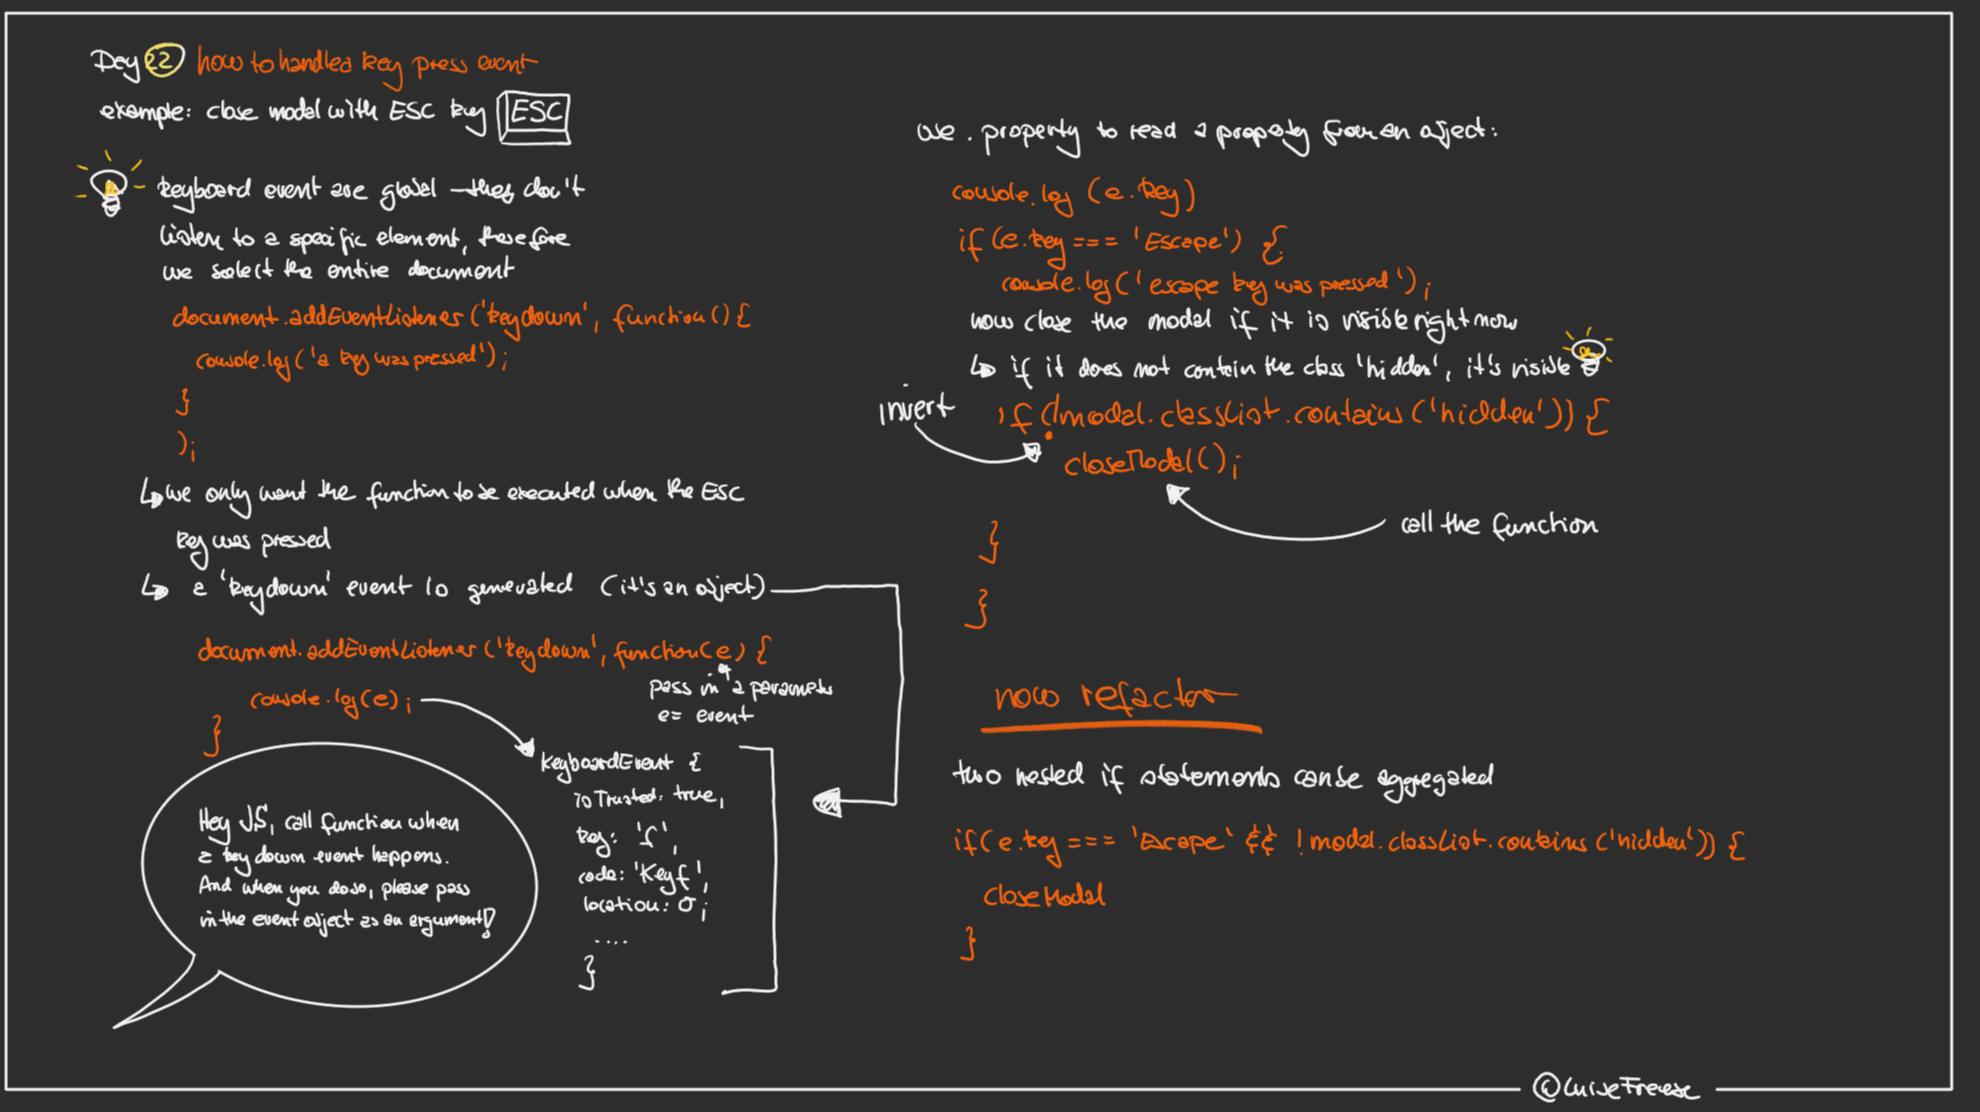 Day 22 how to handled key press event
example: close modal with ESC key ESC
keyboard event are global – they don't
listen to a specific element, therefore
we select the entire document
document.addEventListener('keydown', function(){
console.log('a key was pressed');
}
);
↳ we only want the function to be executed when the ESC
key was pressed
↳ a 'keydown' event is generated (it's an object)
document.addEventListener('keydown', function(e) {
pass in a parameter
e= event
console.log(e);
}
KeyboardEvent {
isTrusted: true,
key: 'f',
code: 'Keyf',
location: 0;
....
}
Hey JS, call function when
a keydown event happens.
And when you do so, please pass
in the event object as an argument!
use . property to read a property from an object:
console.log (e.key)
if (e.key === 'Escape') {
console.log('escape key was pressed');
now close the modal if it is visible right now
↳ if it does not contain the class 'hidden', it's visible
invert
if (!modal.classList.contains('hidden')) {
closeModal();
call the function
}
}
now refactor
two nested if statements can be aggregated
if(e.key === 'Escape' && !modal.classList.contains('hidden')) {
closeModal
}
© Luise Freese